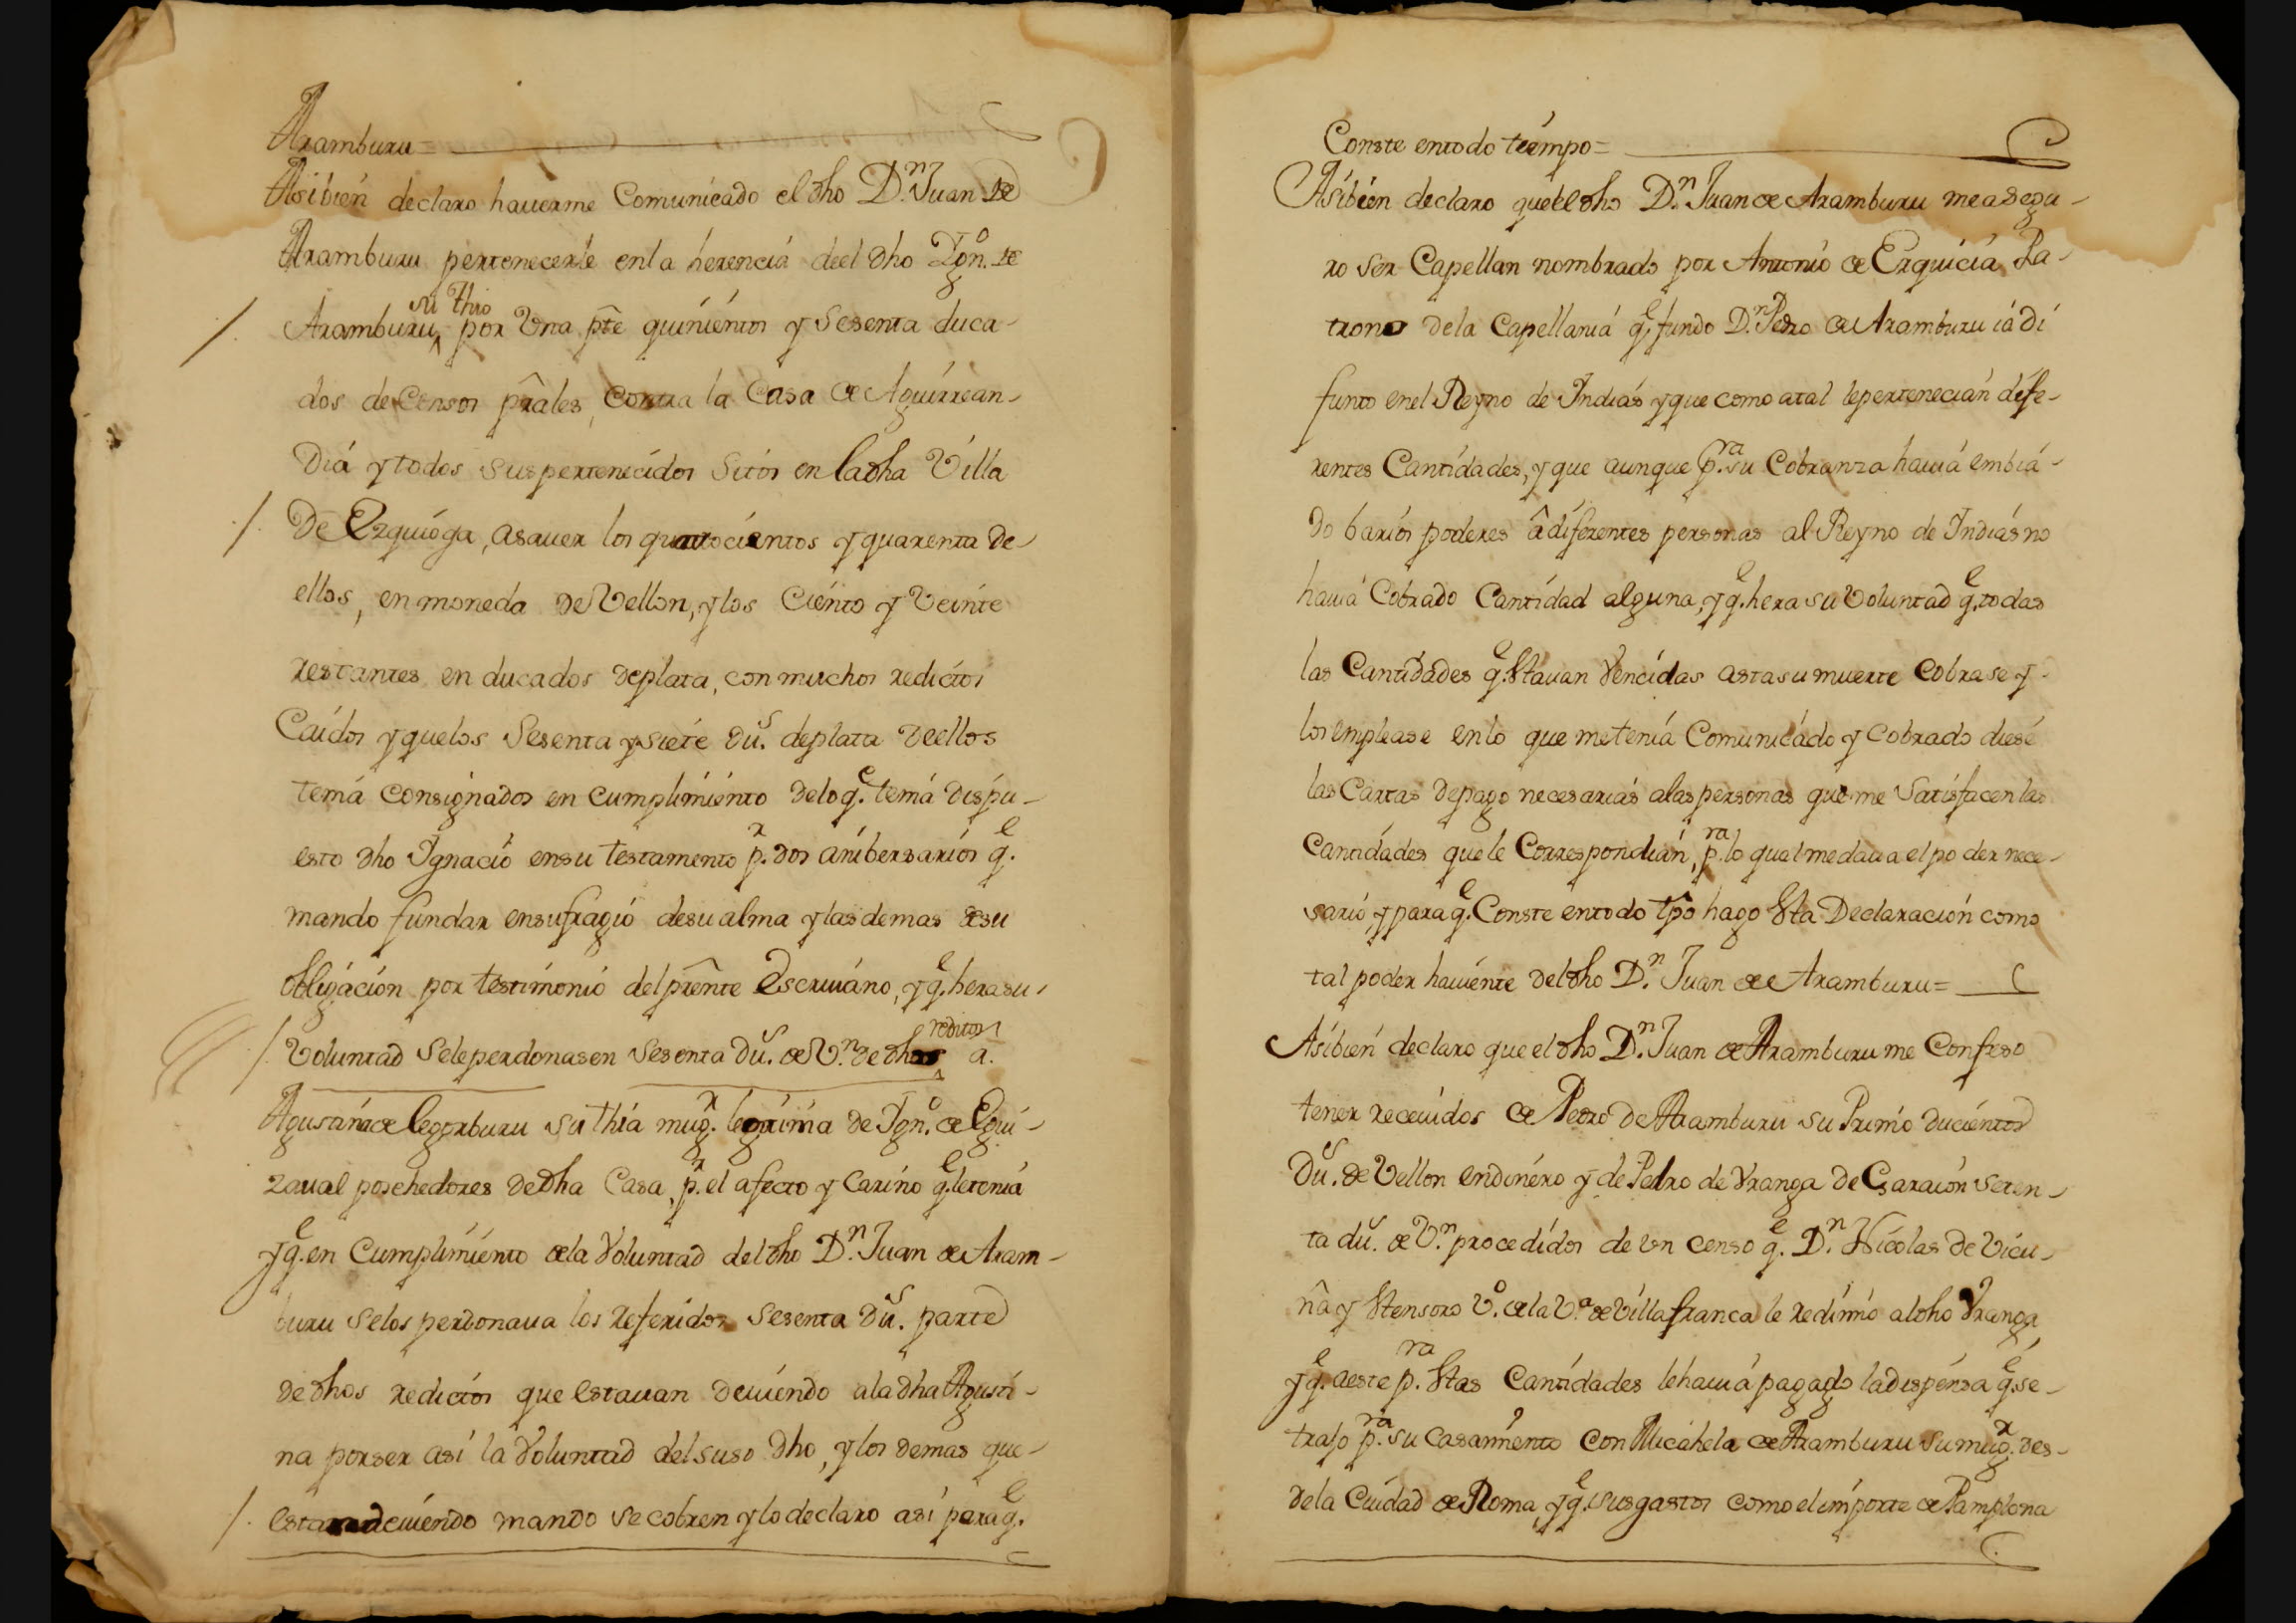 Aramburu =
Asibien declaro hauerme Comunicado el dho D.n Juan de
Aramburu pertenecerle en la herencia deel dho Ign.o de
Aramburu su thio por Una pte quinientos y Sesenta duca-
dos de Censos prales, contra la Casa de Aguirrean-
dia y todos sus pertenecidos Sitos en la dha Villa
De Ezquioga, asauer los quatrocientos y quarenta de
ellos, en moneda de Vellon, y los Ciento y Veinte
restantes en ducados de plata, con muchos redictos
Caidos y quelos Sesenta y siete du.s de plata de ellos
tenia consignados en cumplimiento delo q.e tenia dispu-
esto dho Ignacio en su testamento p.r dos anibersarios q.e
mando fundar en sufragio de su alma y las demas de su
obligacion por testimonio del prente Escriuano, y q.e hera su
Voluntad sele perdonasen Sesenta du.s de V.n de dhos reditos a.
Agustina de Legorburu su thia mug.r legitima de Ign.o de Egui-
zaual posehedores de dha Casa, p.r el afecto y Carino q.e le tenia
y q.e en Cumplimiento de la Voluntad del dho D.n Juan de Aram-
buru selos perdonaua los referidos Sesenta du.s parte
de dhos redictos que estauan deuiendo ala dha Agusti-
na por ser asi la Voluntad del suso dho, y los demas que
deuiendo mando se cobren y lo declaro asi para q.e
Conste en todo tiempo =
Asibien declaro que el dho D.n Juan de Aramburu me asegu-
ro ser Capellan nombrado por Antonio de Ezquicia Pa-
trono de la Capellania q.e fundo D.n Pedro de Aramburu ia di
funto en el Reyno de Indias y que como a tal le pertenecian dife-
rentes Cantidades, y que aunque p.ra su Cobranza hauia embia-
do barios poderes â diferentes personas al Reyno de Indias no
hauia Cobrado Cantidad alguna, y q.e hera su Voluntad q.e todas
las Cantidades q.e Stauan Vencidas asta su muerte Cobrase y
los emplease en lo que me tenia Comunicado y Cobrado diese
las Cartas de pago necesarias alas personas que me Satisfacen las
Cantidades que le Correspondian, p.ra lo qual me daua el poder nece-
sario, y para q.e Conste en todo tpô hago Sta Declaracion como
tal poder hauiente del dho D.n Juan de Aramburu =
Asibien declaro que el dho D.n Juan de Aramburu me Confeso
tener receuidos de Pedro de Aramburu su Primo ducientos
Du.s de Vellon en dinero y de Pedro de Vranga de seten-
ta du.s de V.n procedidos de vn censo q.e D.n Nicolas de Vicu-
ña y Stensoro V.o de la V.a de Villafranca le redimio al dho Vranga
y q.e a este p.ra Stas Cantidades le hauia pagado la dispensa q.e se
trajo p.ra su Casamiento Con Micahela de Aramburu su mug.r des-
de la Ciudad de Roma, y q.e sus gastos como el importe de Pamplona